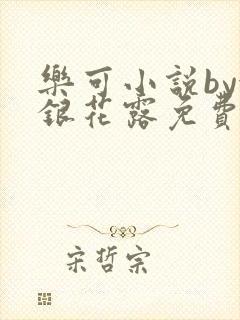 樂可小說by
銀花露免費
宋哲宗